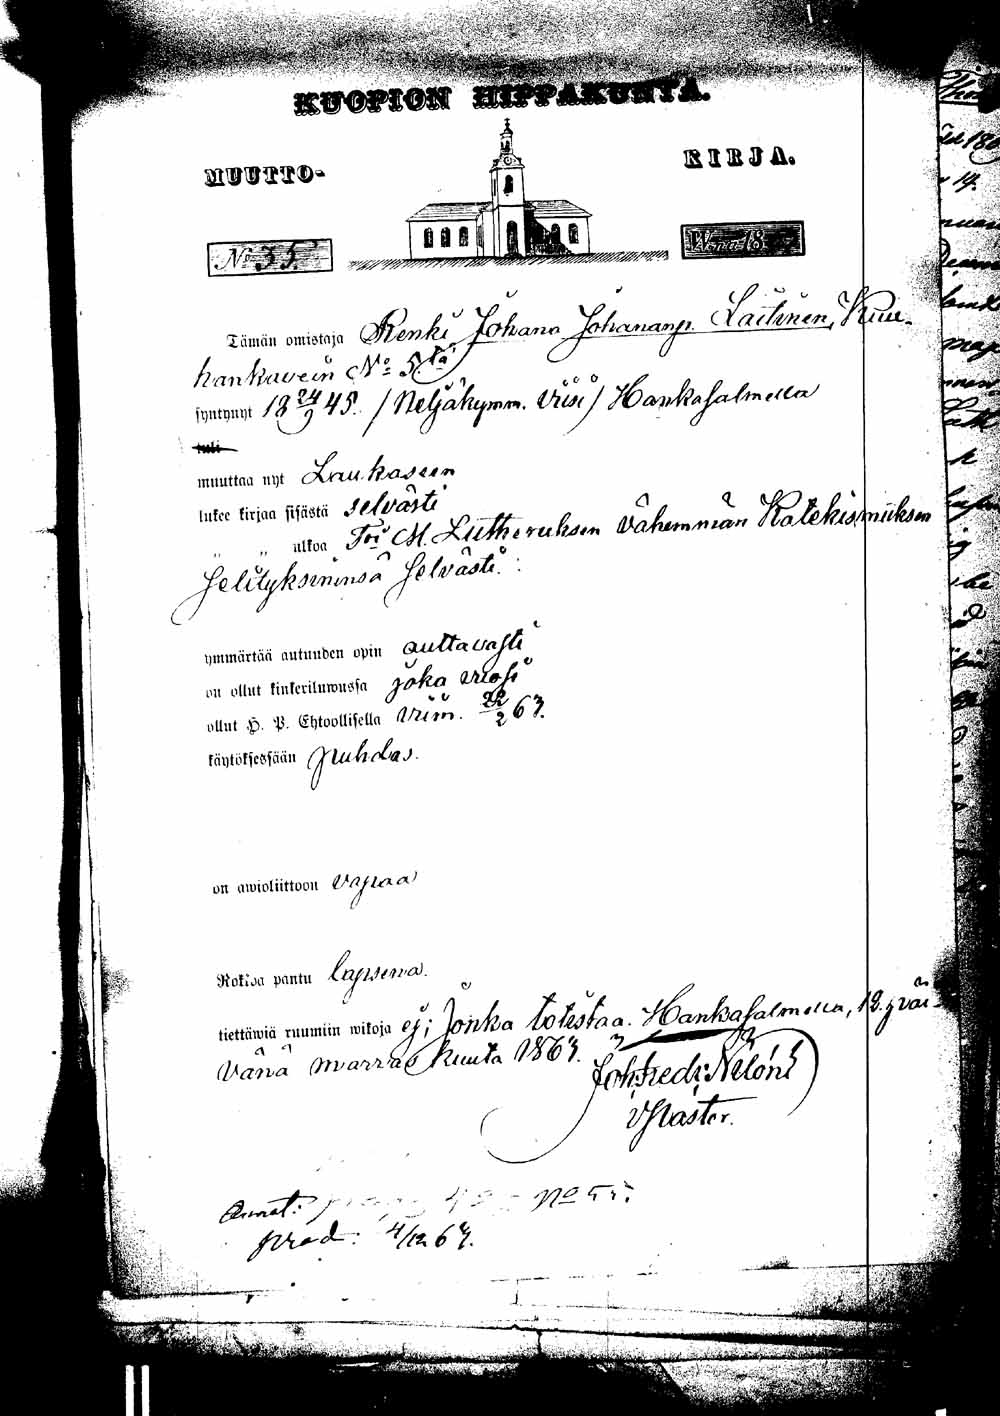 KUOPION HIPPAKUNTA.
MUUTTO- KIRJA.
No 35. Wna 18
Tämän omistaja Renki Johana Johananp. Laitinen, Kuu-
hankavein No 5 ta
syntynyt 18 24/9 45. / Neljäkymm. Viisi / Hankasalmella
tuli
muuttaa nyt Laukaseen
lukee kirjaa sisästä selvästi
„ „ ulkoa Toi M. Lutheruksen Vähemmän Katekismuksen
Selityksininsä Selvästi.
ymmärtää autuuden opin auttavasti
on ollut kinkeriluwussa joka vuosi
ollut H. P. Ehtoollisella viim. 22/2 67.
käytöksessään puhdas.
on awioliittoon vapaa
Rokkoa pantu lapsena.
tiettäwiä ruumiin wikoja ej; Jonka totistaa. Hankasalmella, 12. p väi-
vänä marras kuuta 1867.
Joh. Fredr. Nelón
V Pastor.
Annot: No 55.
prod. 4/12 67.